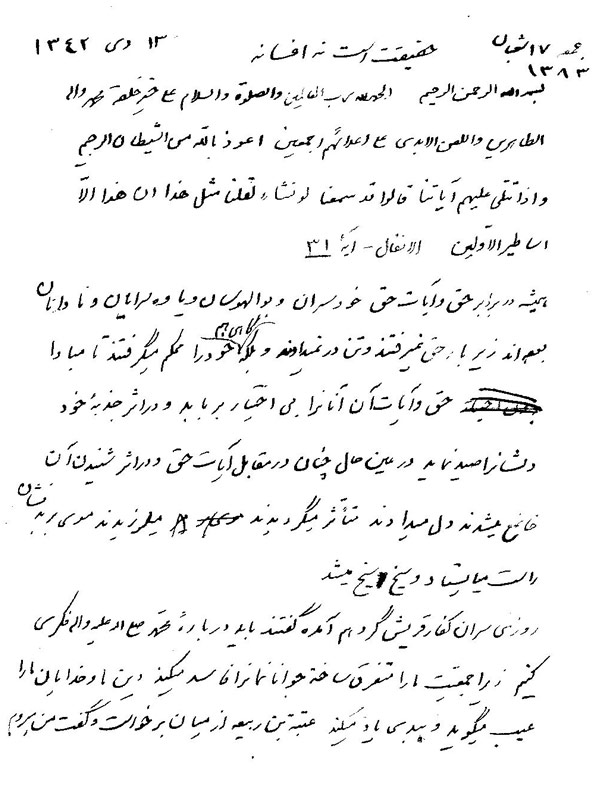 جمعه ۱۷ شعبان ۱۳۸۳
حقیقت است نه افسانه
۱۳ دی ۱۳۴۲
بسم الله الرحمن الرحیم الحمدلله رب العالمین والصلوة والسلام علی خیر خلقه محمد واله
الطاهرین واللعن الابدی علی اعدائهم اجمعین اعوذ بالله من الشیطان الرجیم
واذا تتلی علیهم آیاتنا قالوا قد سمعنا لو نشاء لقلنا مثل هذا ان هذا الّا
اساطیر الاّولین الانفال - آیۀ ۳۱
همیشه در برابر حق وآیات حق خودسران و بوالهوسان ویاوه سرایان و نادانان
بوده اند زیر بار حق نمیرفتند و تن در نمیدادند و بلکه گاهی هم خود را محکم میگرفتند تا مبادا
حق وآیات آن آنانرا بی اختیار برباید و در اثر جذبۀ خود
دلشانرا صید نماید در عین حال چنان در مقابل آیات حق ودر اثر شنیدن آن
خاضع میشدند دل میدادند متأثر میگردیدند میلرزیدند موی بر بدنشان
راست میایستاد و سیخ سیخ میشد
روزی سران کفار قریش گرد هم آمده گفتند باید دربارۀ محمد صلی الله علیه واله فکری
کنیم زیرا جمعیت ما را متفرق ساخته جوانانمانرا فاسد میکند دین ما و خدایان ما را
عیب میگوید و ببدی یاد میکند عتبة بن ربیعه از میان برخواست وگفت من میروم